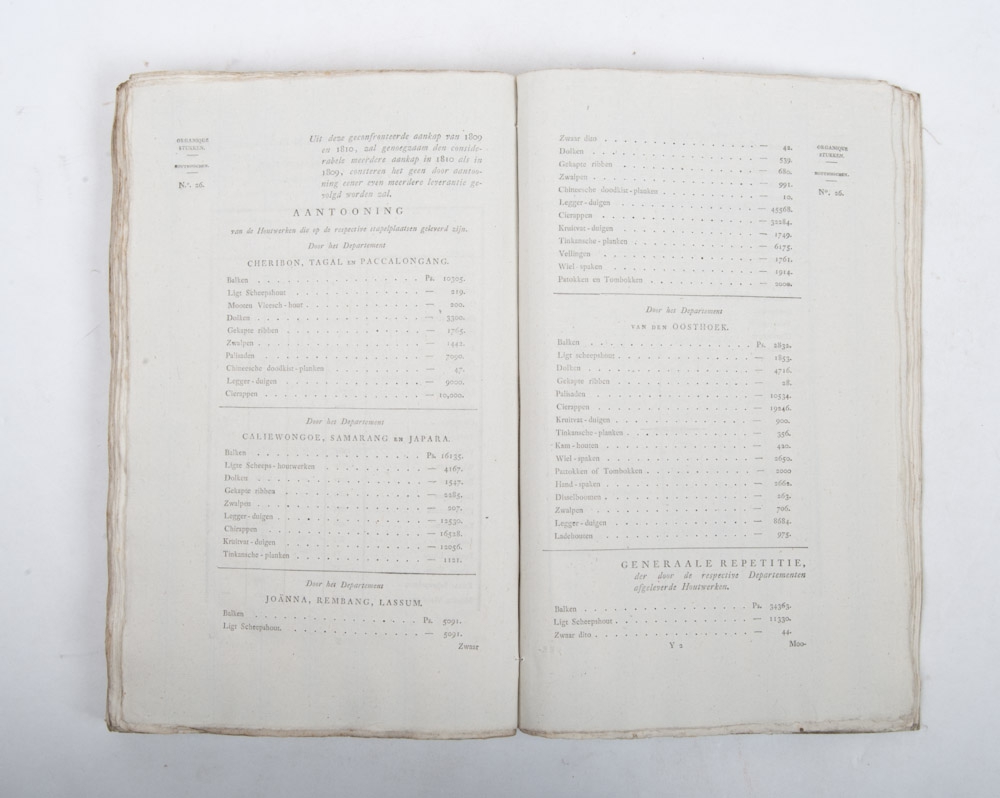 ORGANIQUE
STUKKEN.
N°. 26.
Uit deze geconfronteerde aankap van 1809
en 1810, zal genoegzaam den conside-
rabele meerdere aankap in 1810 als in
1809, consteren het geen door aantoo-
ning eener even meerdere leverantie ge-
volgd worden zal.
AANTOONING
van de Houtwerken die op de respective stapelplaatsen geleverd zijn.
Door het Departement
CHERIBON, TAGAL EN PACCALONGANG.
Balken . . . . . Ps. 10305.
Ligt Scheepshout . . . . . — 219.
Mooren Viersch-hout . . . . . — 200.
Dolken . . . . . — 3300.
Gekapte ribben . . . . . — 1765.
Zwalpen . . . . . — 1442.
Palisaden . . . . . — 7090.
Chineesche doodkist-planken . . . . . — 47.
Legger-duigen . . . . . — 9000.
Cierappen . . . . . — 10,000.
Door het Departement
CALIEWONGOE, SAMARANG EN JAPARA.
Balken . . . . . Ps. 16135.
Ligte Scheeps-houtwerken . . . . . — 4167.
Dolken . . . . . — 1547.
Gekapte ribben . . . . . — 2285.
Zwalpen . . . . . — 207.
Legger-duigen . . . . . — 12530.
Chirappen . . . . . — 16528.
Kruitvat-duigen . . . . . — 12056.
Tinkansche-planken . . . . . — 1121.
Door het Departement
JOÄNNA, REMBANG, LASSUM.
Balken . . . . . Ps. 5091.
Ligt Scheepshout . . . . . — 5091.
Zwaar
ORGANIQUE
STUKKEN.
N°. 26.
Zwaar dito . . . . . — 42.
Dolken . . . . . — 539.
Gekapte ribben . . . . . — 680.
Zwalpen . . . . . — 991.
Chineesche doodkist-planken . . . . . — 10.
Legger-duigen . . . . . — 45568.
Cierappen . . . . . — 32284.
Kruitvat-duigen . . . . . — 1749.
Tinkansche-planken . . . . . — 6175.
Vellingen . . . . . — 1761.
Wiel-spaken . . . . . — 1914.
Patokken en Tombokken . . . . . — 2000.
Door het Departement
VAN DEN OOSTHOEK.
Balken . . . . . Ps. 2832.
Ligt scheepshout . . . . . — 1853.
Dolken . . . . . — 4716.
Gekapte ribben . . . . . — 28.
Palisaden . . . . . — 10534.
Cierappen . . . . . — 19246.
Kruitvat-duigen . . . . . — 900.
Tinkansche-planken . . . . . — 356.
Kam-houten . . . . . — 420.
Wiel-spaken . . . . . — 2650.
Patokken of Tombokken . . . . . — 2000
Hand-spaken . . . . . — 2662.
Disselboomen . . . . . — 263.
Zwalpen . . . . . — 706.
Legger-duigen . . . . . — 8684.
Ladehouten . . . . . — 975.
GENERAALE REPETITIE,
der door de respective Departementen
afgeleverde Houtwerken.
Balken . . . . . Ps. 34363.
Ligt Scheepshout . . . . . — 11330.
Zwaar dito . . . . . — 44.
Y 2 Moo-